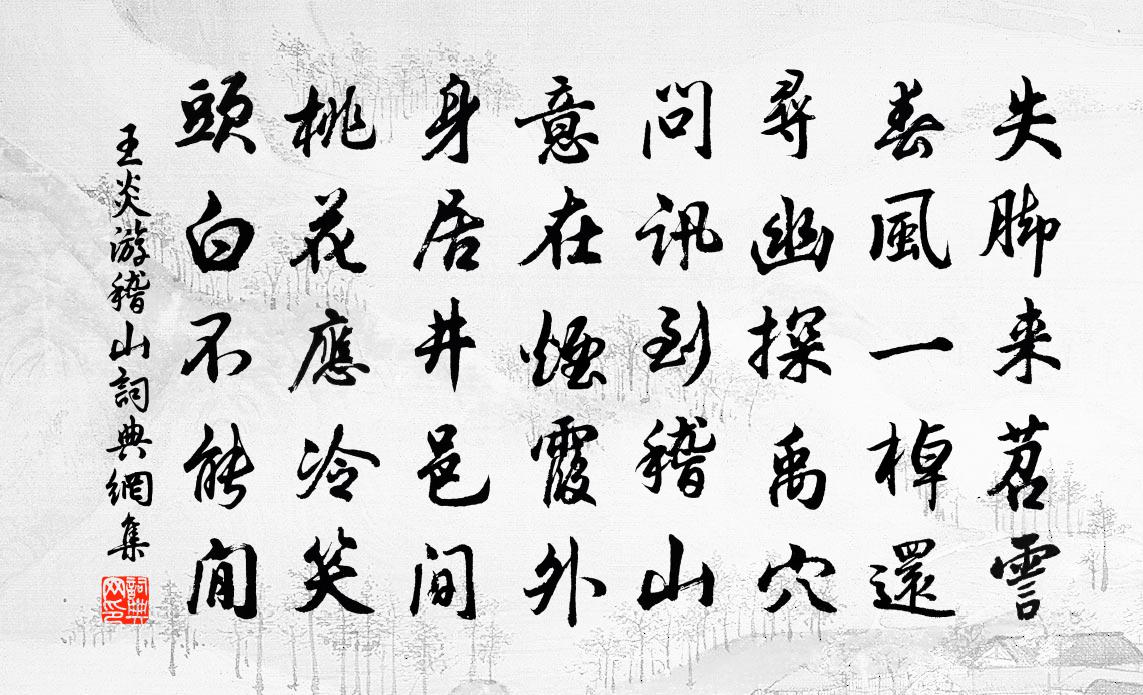 失脚来苕霅
春風一棹還
尋幽探禹穴
問訊到稽山
意在煙霞外
身居井邑間
桃花應冷笑
頭白不能閒
王炎游稽山詞典網集
詞典網印